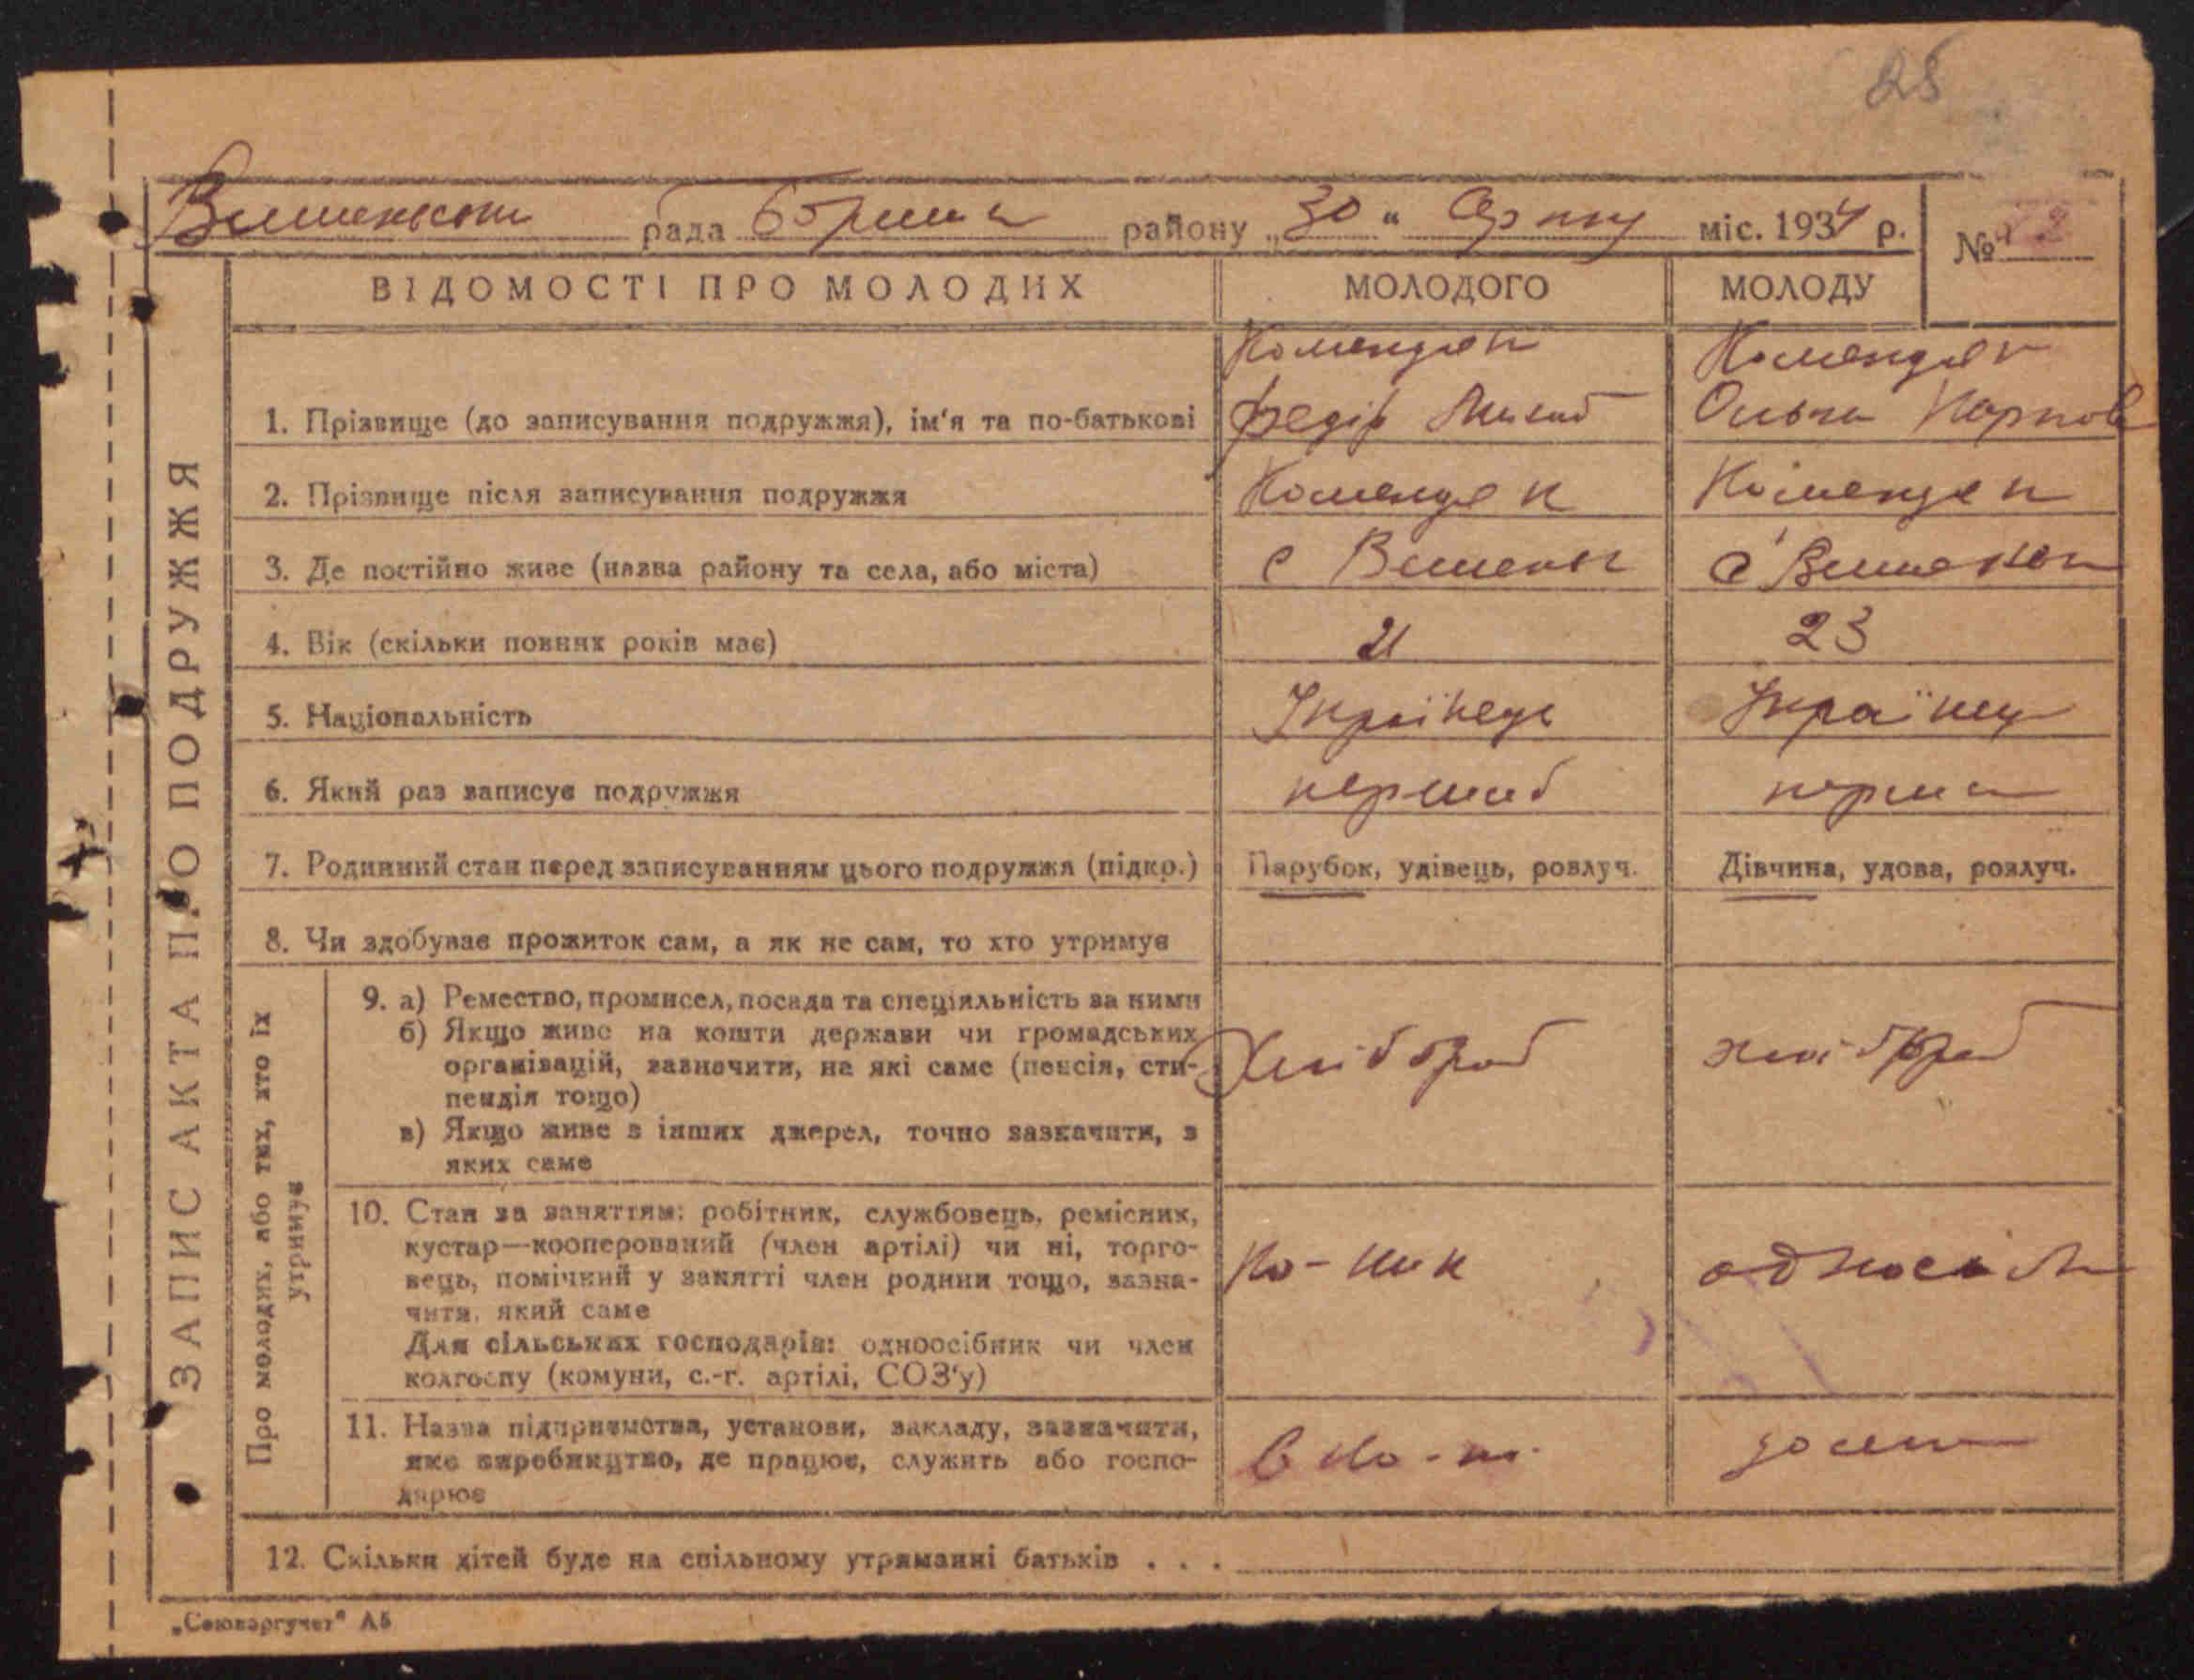 28
рада района „30“ Серпня міс. 1934 р.
№ 2
ВІДОМОСТІ ПРО МОЛОДИХ МОЛОДОГО МОЛОДУ
ЗАПИС АКТА ПРО ПОДРУЖЖЯ
1. Прізвище (до записування подружжя), ім'я та по-батькові Федір Ольга Карпов
2. Прізвище після записування подружжя
3. Де постійно живе (назва району та села, або міста) с Вишеньки с Вишеньки
4. Вік (скільки повних років має) 21 23
5. Національність Українець Українец
6. Який раз записує подружжя перший перша
7. Родинний стан перед записуванням цього подружжя (підкр.) Парубок, удівець, розлуч. Дівчина, удова, розлуч.
8. Чи здобуває прожиток сам, а як не сам, то хто утримує
Про молодих, або тих, хто їх
утримує
9. а) Ремество, промисел, посада та спеціяльність за ними
б) Якщо живе на кошти держави чи громадських
організацій, зазначити, на які саме (пенсія, сти-
пендія тощо)
в) Якщо живе з інших джерел, точно зазначити, з
яких саме
хлібороб хлібороб
10. Стан за заняттям: робітник, службовець, ремісник,
кустар—кооперований (член артілі) чи ні, торго-
вець, помічний у занятті член родини тощо, зазна-
чити, який саме
Для сільських господарів: одноосібник чи член
колгоспу (комуни, с.-г. артілі, СОЗ'у)
ко-ник
11. Назва підприємства, установи, закладу, зазначити,
яке виробництво, де працює, служить або госпо-
дарює
12. Скільки дітей буде на спільному утриманні батьків . . .
„Союзоргучет“ А5